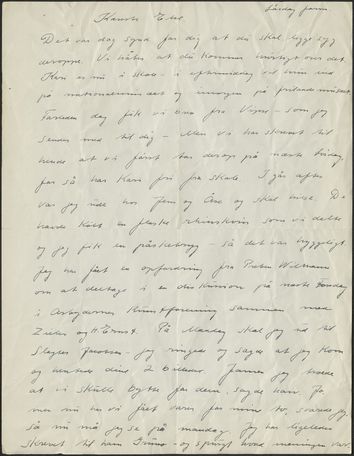 Lørdag form.
Kæreste Ebbe.
Det var dog synd for dig at du skal ligge syg
deroppe. Vi håber at du kommer hurtigt over det.
Kari er nu i skole - i eftermiddag vil hun ind
på nationalmuseet og imorgen på frilandsmuseet.
Forleden dag fik vi brev fra - som jeg
sender med til dig - Men vi har skrevet til
hende at vi først tar derop på næste fredag,
for så har Kari fri fra skole. I går aftes
var jeg ude hos Jens og Åse og skal hilse. De
havde købt en flaske rhinskvin som vi delte
og jeg fik en påskebryg - så det var hyggeligt
Jeg har fået en opfordring fra Preben Wilmann
om at deltage i en diskussion på næste torsdag
i Arbejdernes Kunstforening sammen med
og Ernst. På Mandag skal jeg ud til
Slagter Jacobsen - jeg ringede og sagde at jeg kom
og hentede dine 2 billeder. Jamen jeg troede
at vi skulle bytte for dem, sagde han. Jo,
men nu har vi fået varer for mine to, svarede jeg,
så nu må jeg se på mandag. Jeg har ligeledes
skrevet til ham - og spurgt hvad meningen var.